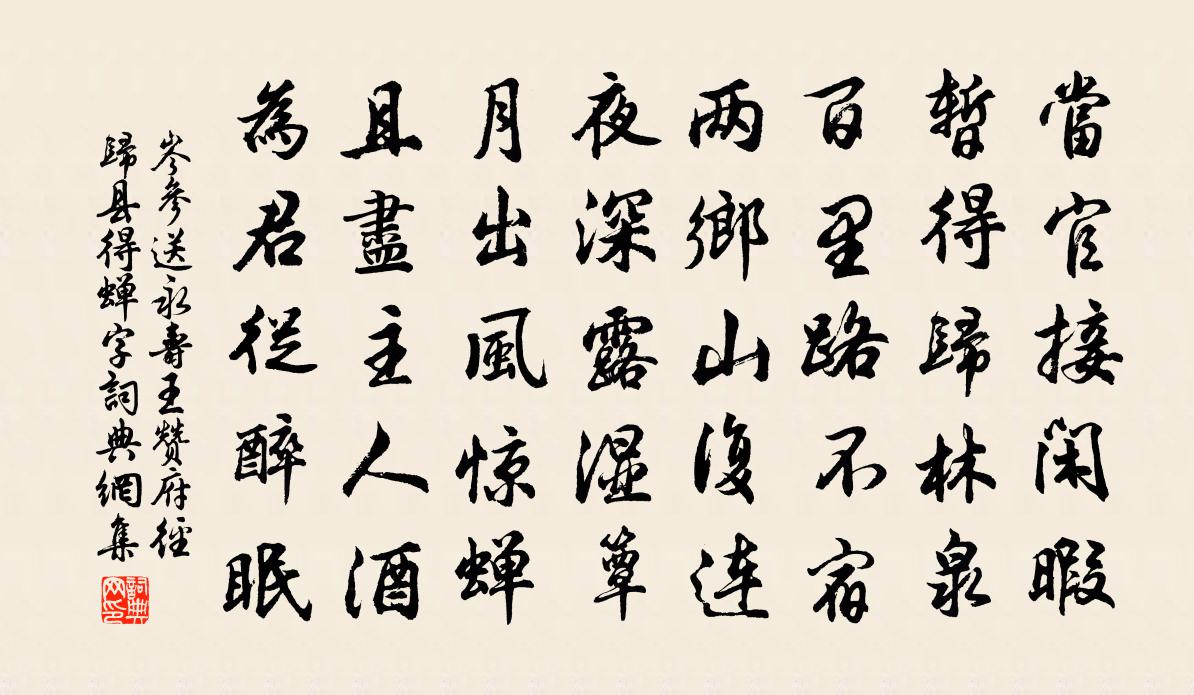 當官接閑暇
暫得歸林泉
百里路不宿
两鄉山復连
夜深露濕簟
月出風惊蝉
且盡主人酒
為君従醉眠
岑參送永壽王赞府徑
歸县得蝉字詞典網集
詞典
网印